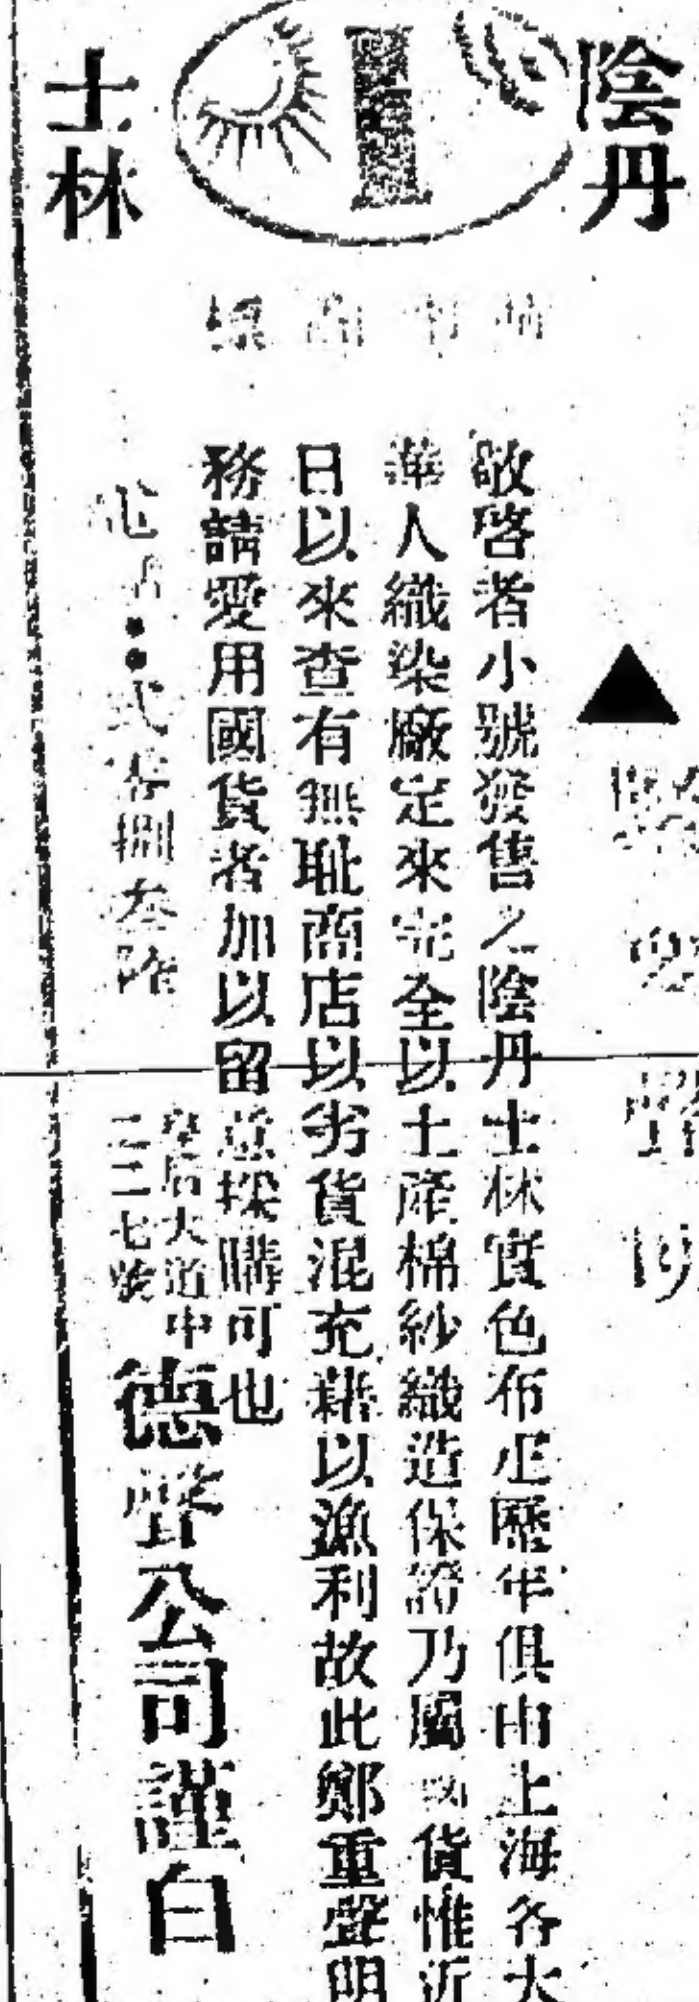 陰丹
士林
敬啓者小號發售之陰丹士林實色布疋歷年俱由上海各大
華人織染廠定來完全以土產棉紗織造保證乃屬國貨惟近
日以來查有無恥商店以劣貨混充藉以漁利故此鄭重聲明
務請愛用國貨者加以留意採購可也
皇后大道中
二二七號
德聲公司謹白